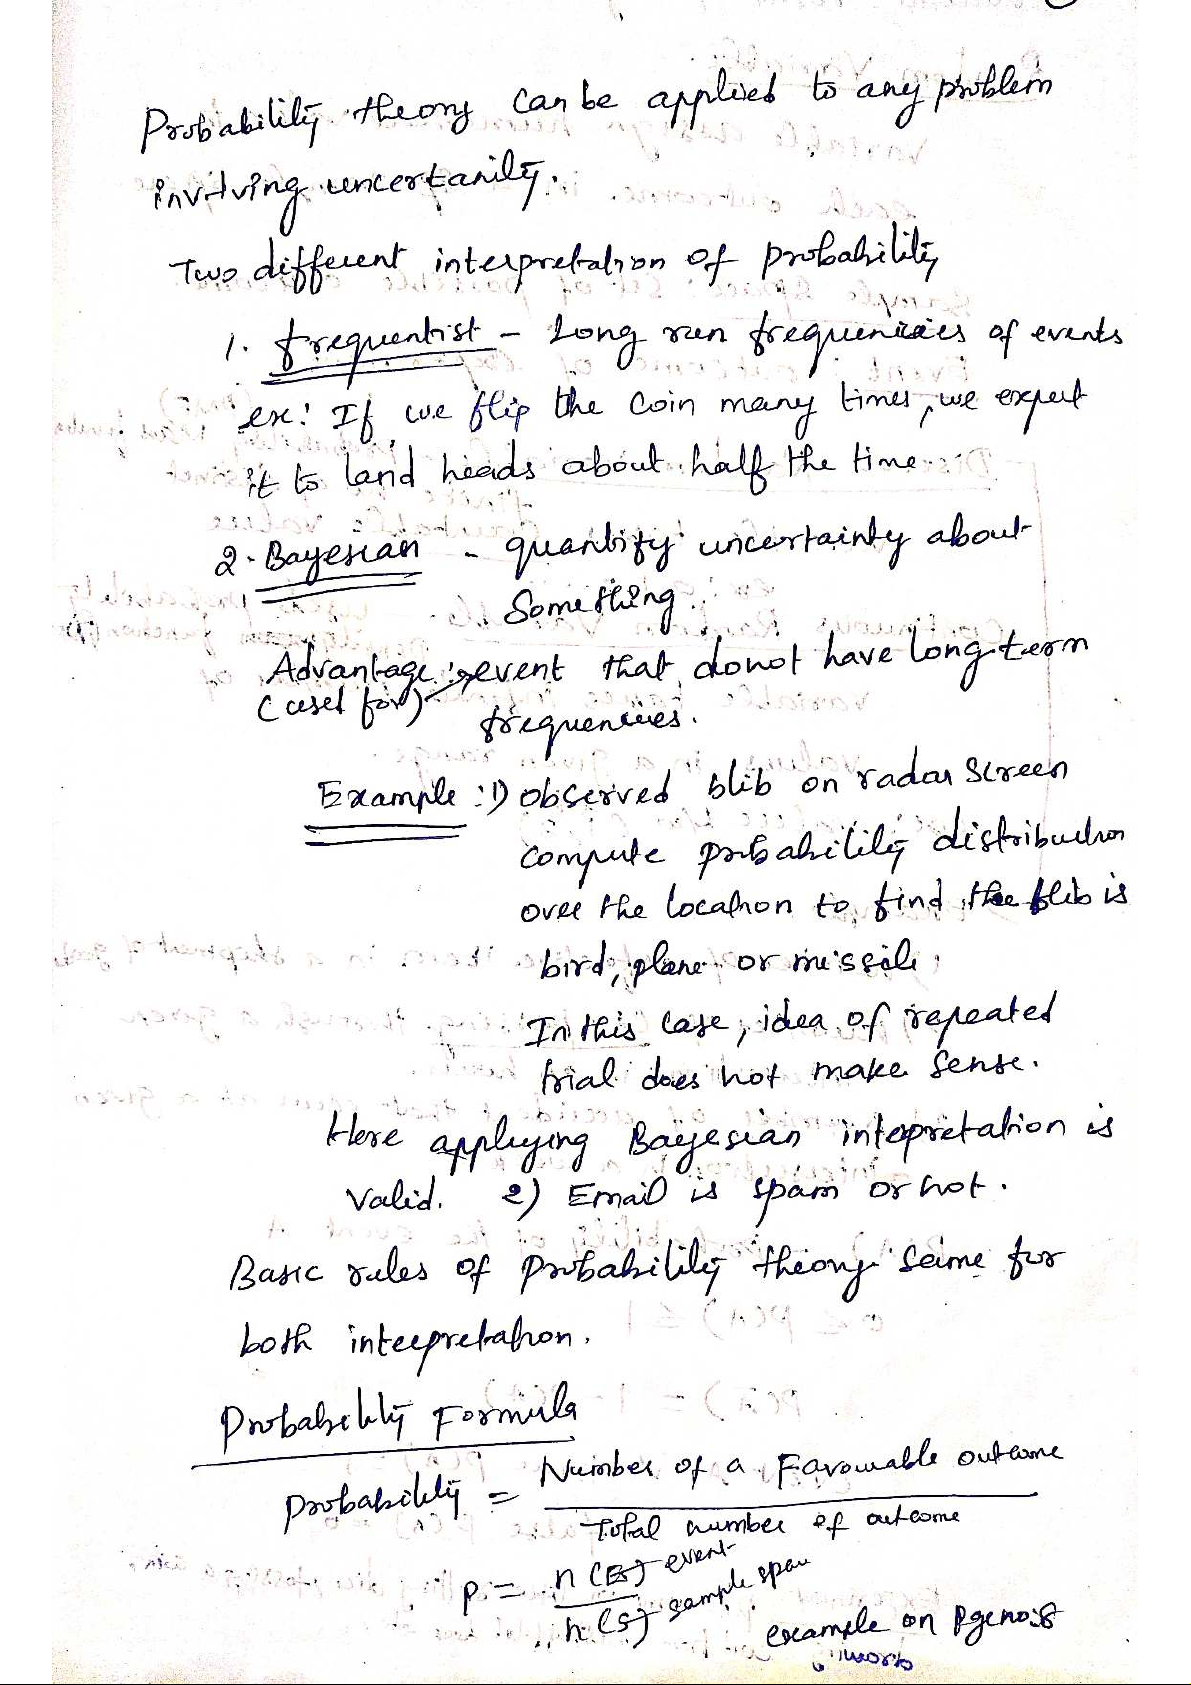 Probability theory can be applied to any problem
involving uncertanity.
Two different interpretation of probability
1. frequentist - Long run frequencies of events
ex: If we flip the coin many times, we expect
it to land heads about half the time.
2. Bayesian - quantify uncertainty about
Something.
Advantage : event that donot have long term
(used for) frequencies.
Example : 1) Observed blib on radar screen
compute probability distribution
over the location to find the blib is
bird, plane or missile.
In this case, idea of repeated
trial does not make sense.
Here applying Bayesian interpretation is
Valid. 2) Email is spam or not.
Basic rules of probability theory same for
both interpretation.
Probability Formula
Probability = Number of a Favourable outcome
Total number of outcome
P = n(E) event
n(S) sample space
example on Pg no:8